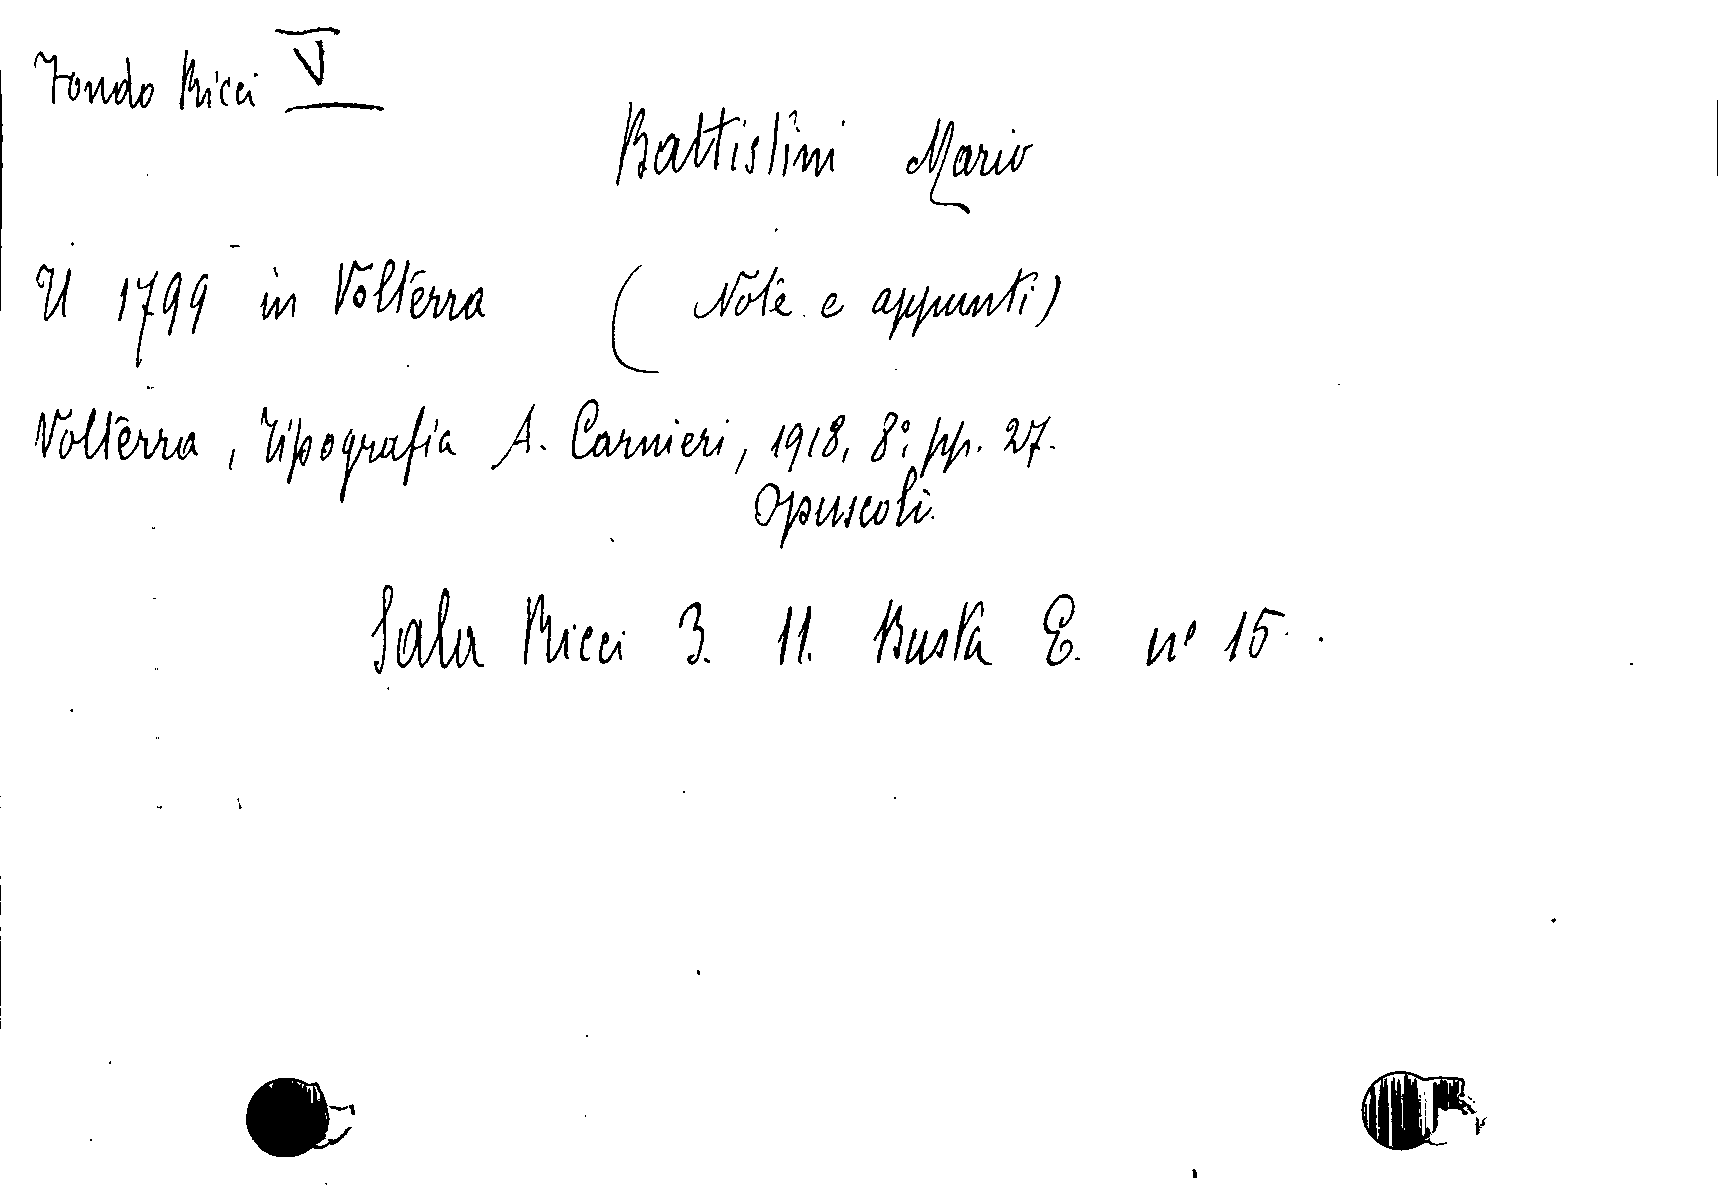 Fondo Ricci V
Battistini Mario
Il 1799 in Volterra (Note e appunti)
Volterra, Tipografia A. Carnieri, 1918, 8° pp. 27.
Opuscoli.
Sala Ricci 3. 11. Busta E. n° 15.